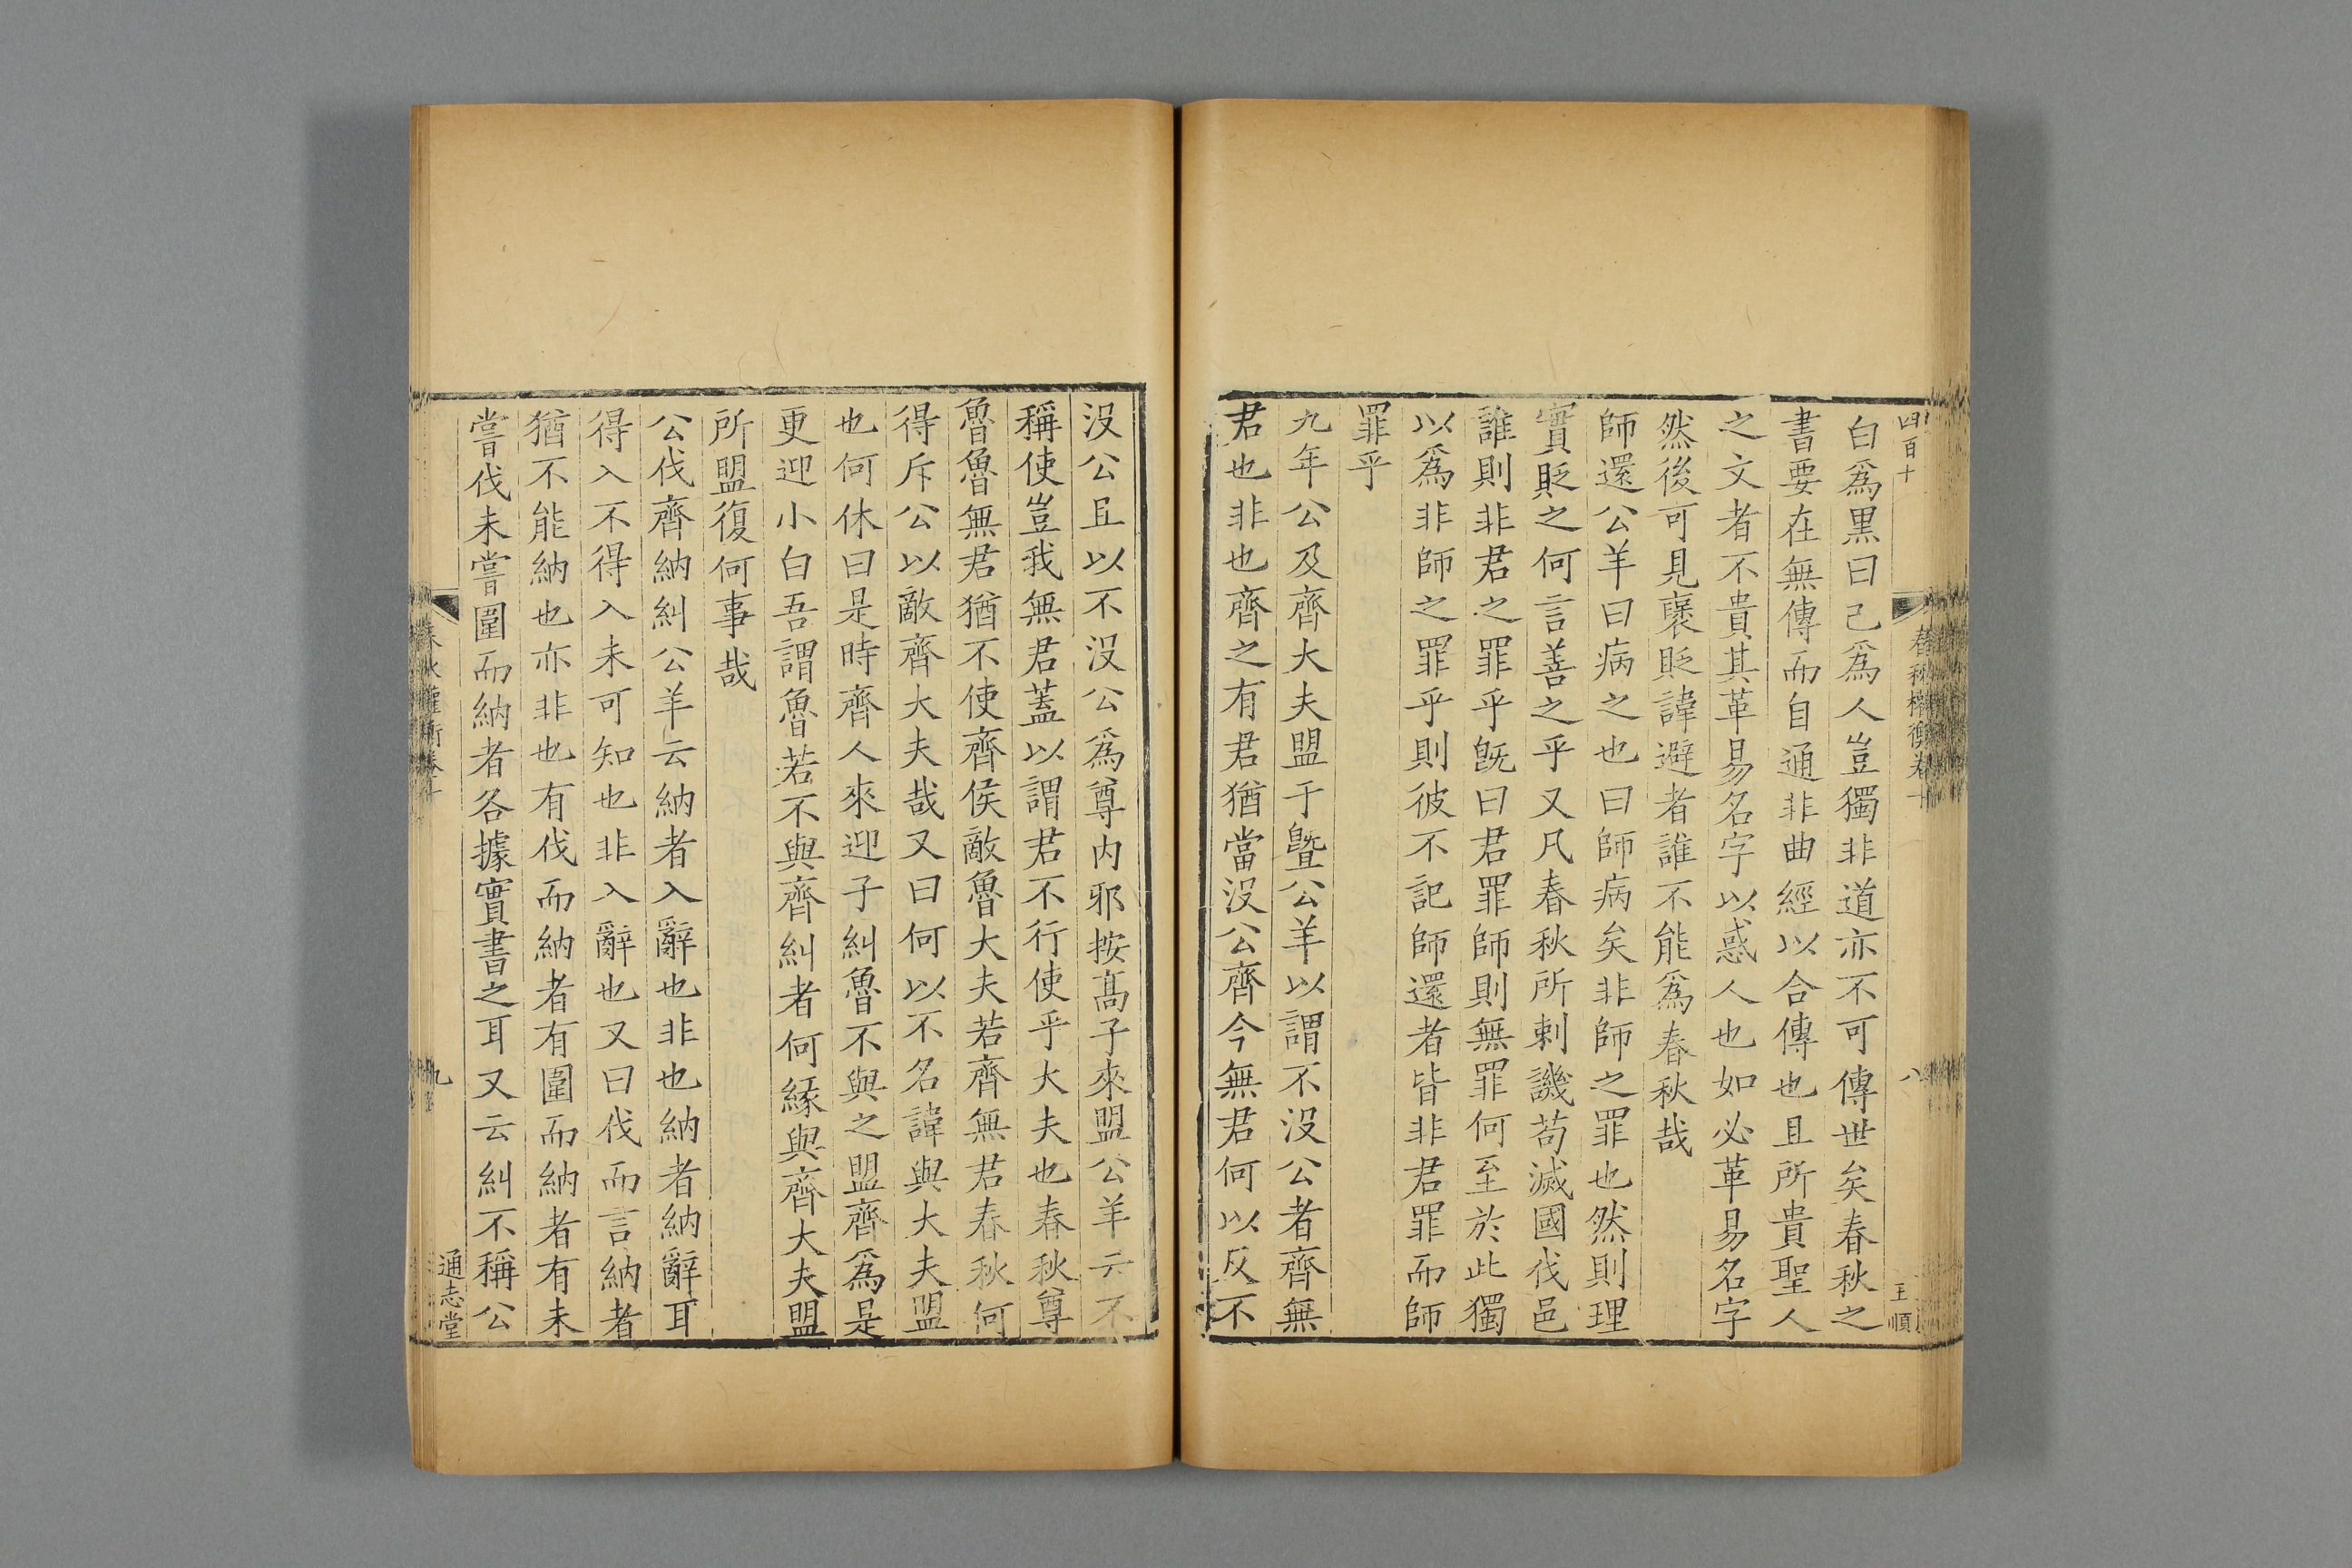 四百十
春秋權衡卷十
八
王順
白爲黑曰己爲人豈獨非道亦不可傳世矣春秋之
書要在無傳而自通非曲經以合傳也且所貴聖人
之文者不貴其革易名字以惑人也如必革易名字
然後可見襃貶諱避者誰不能爲春秋哉
師還公羊曰病之也曰師病矣非師之罪也然則理
實貶之何言善之乎又凡春秋所刺譏苟滅國伐邑
誰則非君之罪乎旣曰君罪師則無罪何至於此獨
以爲非師之罪乎則彼不記師還者皆非君罪而師
罪乎
九年公及齊大夫盟于曁公羊以謂不沒公者齊無
君也非也齊之有君猶當沒公齊今無君何以反不
沒公且以不沒公爲尊内邪按髙子來盟公羊云不
稱使豈我無君蓋以謂君不行使乎大夫也春秋尊
魯魯無君猶不使齊侯敵魯大夫若齊無君春秋何
得斥公以敵齊大夫哉又曰何以不名諱與大夫盟
也何休曰是時齊人來迎子糾魯不與之盟齊爲是
更迎小白吾謂魯若不與齊糾者何緣與齊大夫盟
所盟復何事哉
公伐齊納糾公羊云納者入辭也非也納者納辭耳
得入不得入未可知也非入辭也又曰伐而言納者
猶不能納也亦非也有伐而納者有圍而納者有未
嘗伐未嘗圍而納者各據實書之耳又云糾不稱公
春秋權衡卷十
九
通志堂